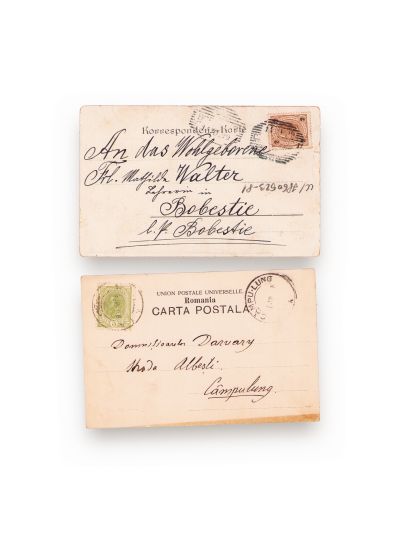 Korrespondenz-Karte
An das Wohlgeborene
Frl. Mathilde Walter
Lehrerin in
Bobestie
l. P. Bobestie
UNION POSTALE UNIVERSELLE.
Romania
CARTA POSTALA
CAMPULUNG
Domnisoarelor Darvary
Strada Albesti.
Câmpulung.